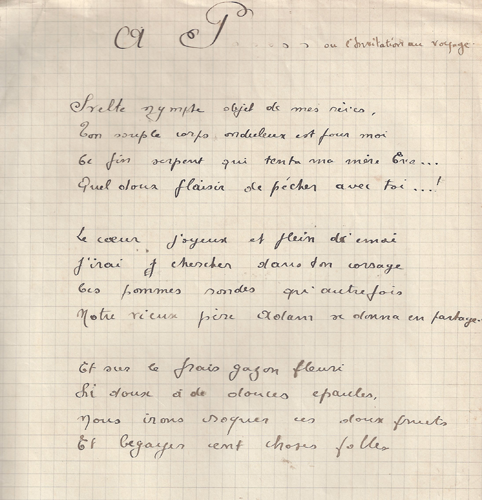 A P... ou l'Invitation au voyage
Svelte nymphe objet de mes rêves,
Ton souple corps onduleux est pour moi
Le fin serpent qui tenta ma mère Eve...
Quel doux plaisir de pécher avec toi...!
Le cœur joyeux et plein d'émoi
J'irai chercher dans ton corsage
Les pommes rondes qu'autrefois
Notre vieux père Adam se donna en partage.
Et sur le frais gazon fleuri
Si doux à de douces epaules,
Nous irons croquer ces doux fruits
Et begayer cent choses folles